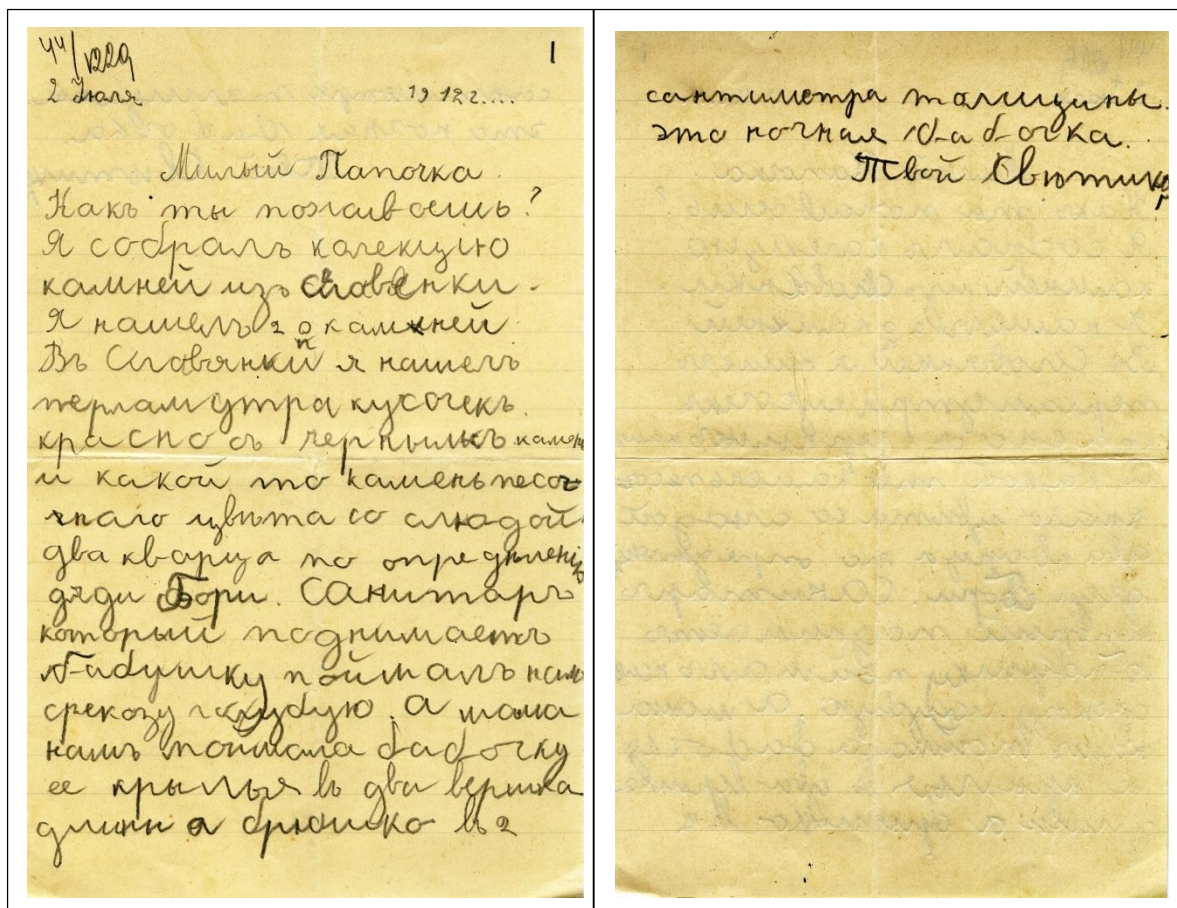 44/1229
1
2 Июля 1912 г....
Милый Папочка
Какъ ты пожаиваешь?
Я собралъ колекцію
камней изъ Славянки.
Я нашелъ 20 камней
Въ Славянкѣ я нашелъ
перламутра кусочекъ.
красно съ чернымъ камень
и какой то камень песоч-
наго цвѣта со слюдой
два кварца по опредѣленію
дяди Бори. Санитаръ
который поднимаетъ
бабушку поймалъ намъ
срекозу голубую. А мама
намъ поймала бабочку
ее крылья въ два вершка
длинн а брюшко въ 2
сантиметра толщины.
это ночная бабочка.
Твой